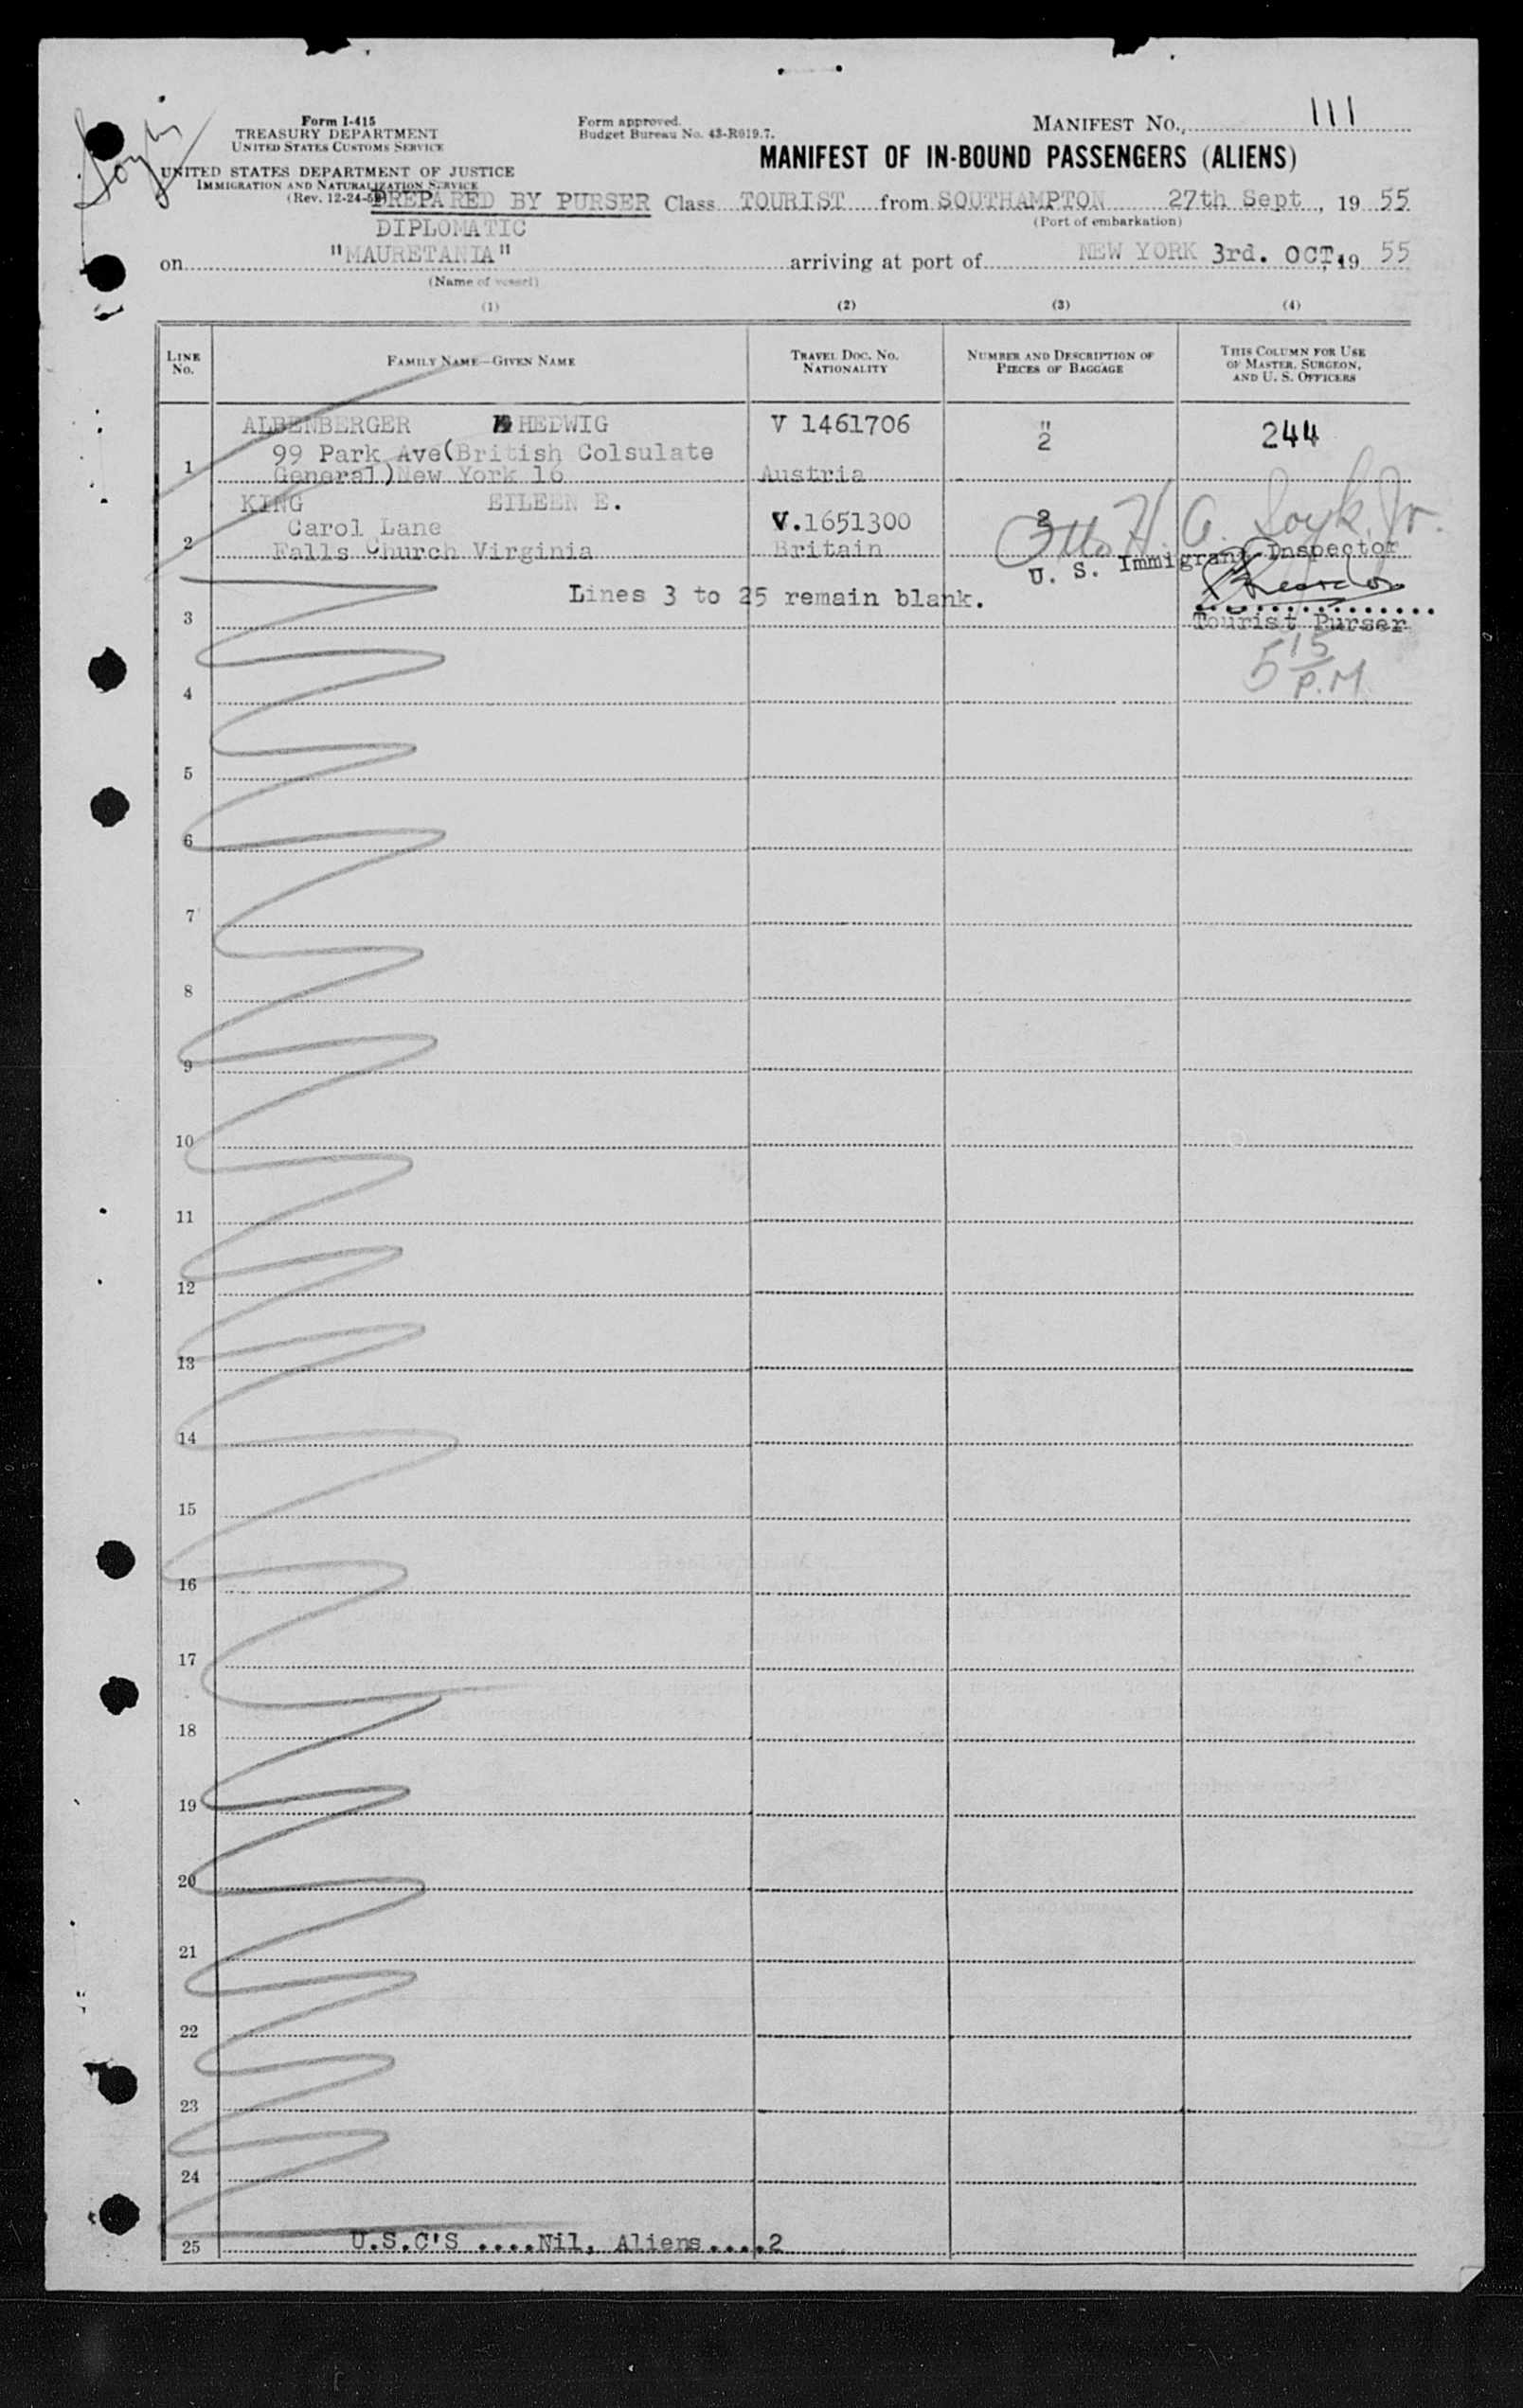 Form I-415
TREASURY DEPARTMENT
UNITED STATES CUSTOMS SERVICE
UNITED STATES DEPARTMENT OF JUSTICE
IMMIGRATION AND NATURALIZATION SERVICE
(Rev. 12-24-52)
Form approved.
Budget Bureau No. 43-R019.7.
MANIFEST No. 111
MANIFEST OF IN-BOUND PASSENGERS (ALIENS)
PREPARED BY PURSER Class TOURIST from SOUTHAMPTON 27th Sept, 19 55
(Port of embarkation)
DIPLOMATIC
on "MAURETANIA" arriving at port of NEW YORK 3rd. OCT, 19 55
(Name of vessel)
(1) (2) (3) (4)
LINE No. FAMILY NAME—GIVEN NAME TRAVEL DOC. NO. NATIONALITY NUMBER AND DESCRIPTION OF PIECES OF BAGGAGE THIS COLUMN FOR USE OF MASTER, SURGEON, AND U. S. OFFICERS
ALBENBERGER HEDWIG V 1461706 " 2 244
99 Park Ave(British Colsulate
1 General)New York 16 Austria
KING EILEEN E.
Carol Lane V.1651300
2 Falls Church Virginia Britain
Otto H. A. Jr.
U. S. Immigrant Inspector
Lines 3 to 25 remain blank.
3
Tourist Purser
5 15 P.M
4
5
6
7
8
9
10
11
12
13
14
15
16
17
18
19
20
21
22
23
24
25 U.S.C'S ....Nil, Aliens....2